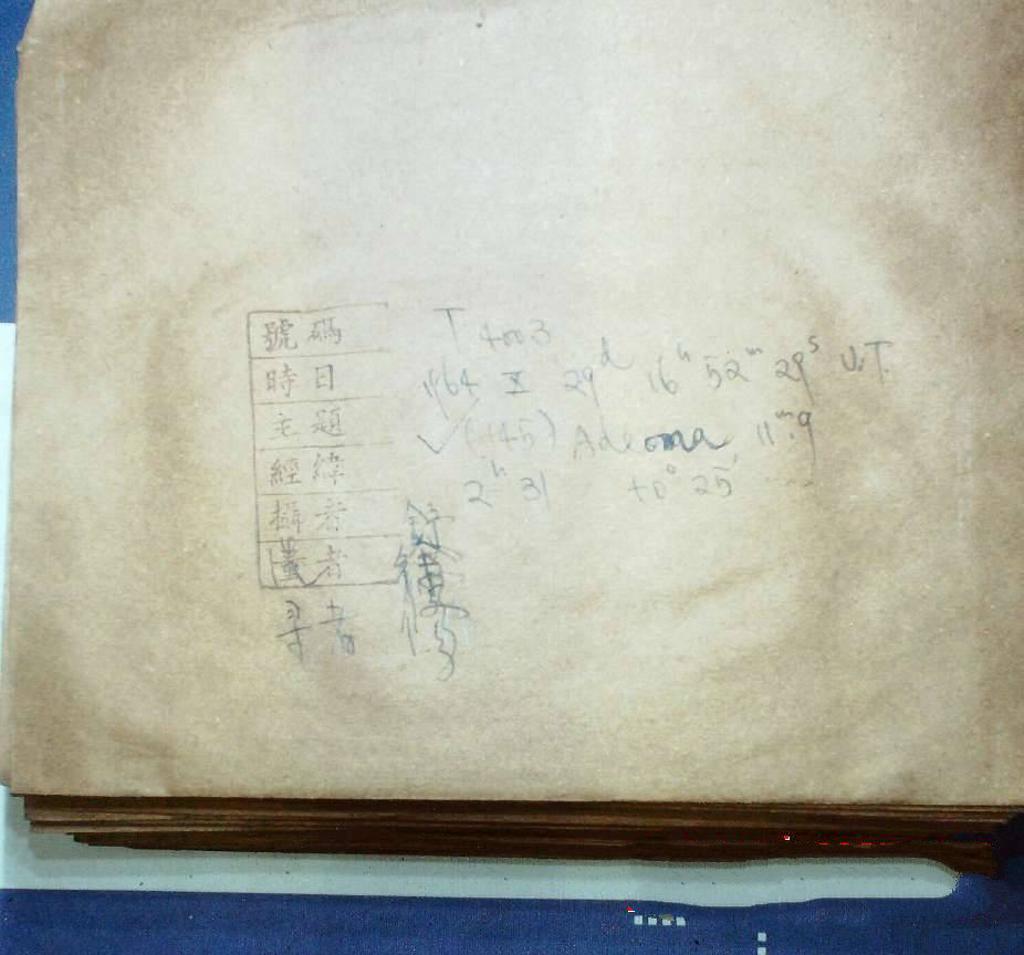 號碼 T 4003
時日 1964 X 29d 16h 52m 29s U.T.
主題 ✓ (145) Adeona 11m.9
經緯 2h 31 +0° 25'
攝者
者
者